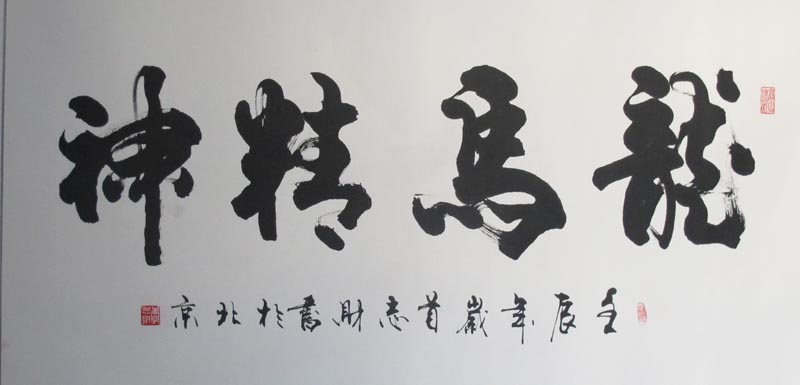 龍馬精神
壬辰年歲首志財書於北京